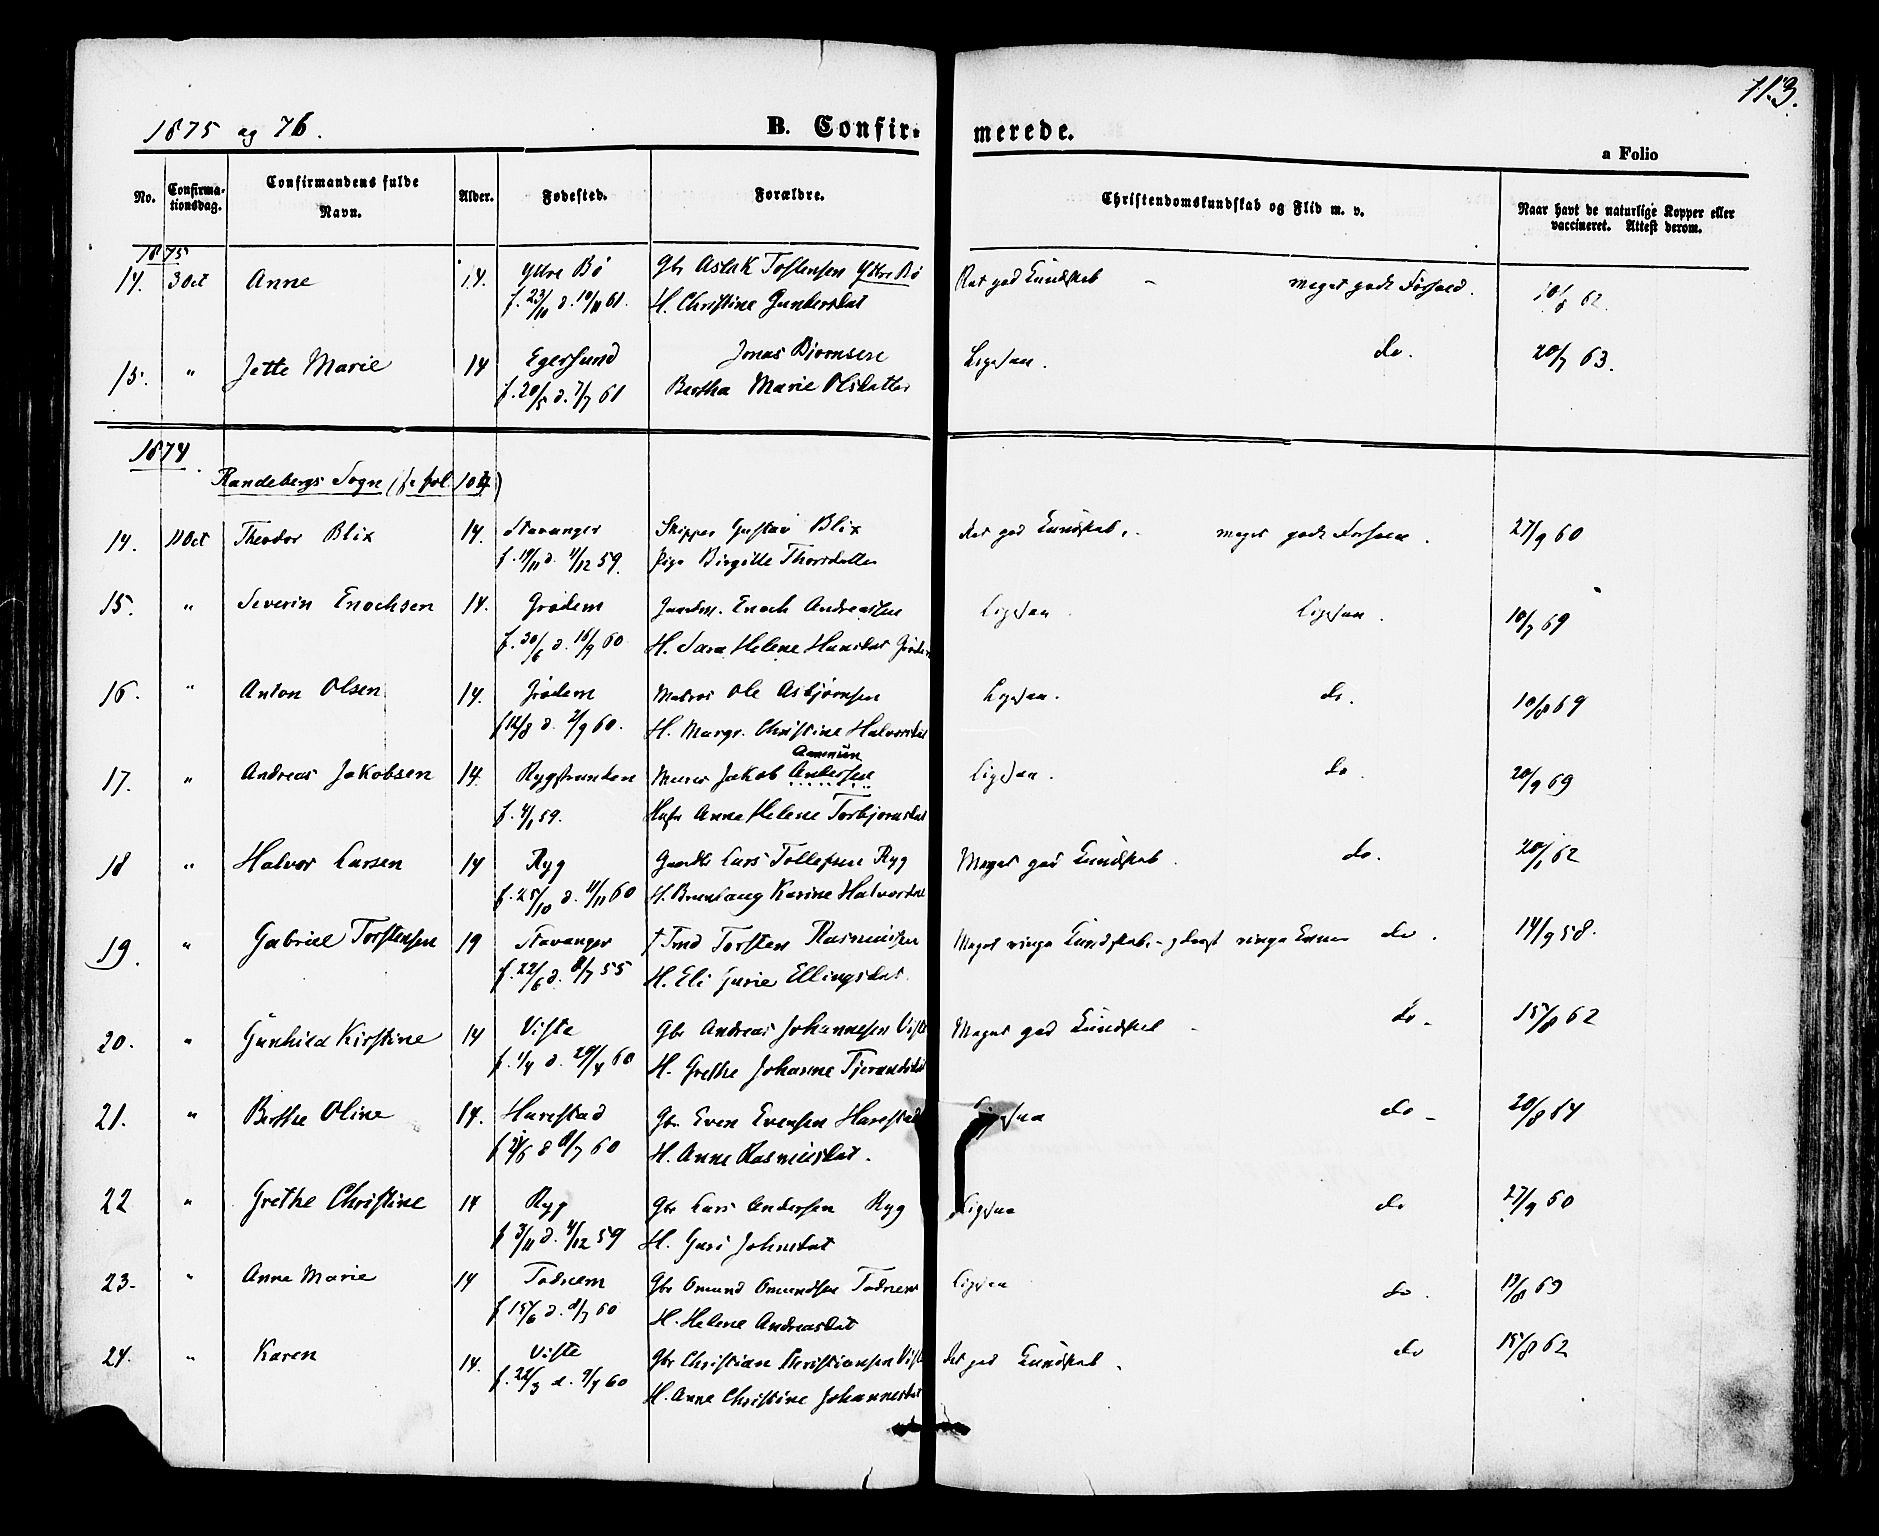 113.
1875 og 76.
B. Confir-
merede.
a Folio
No.
Confirma-
tionsdag.
Confirmandens fulde
Navn.
Alder.
Fødested.
Forældre.
Christendomskundskab og Flid m. v.
Naar havt de naturlige Kopper eller
vaccineret. Attest derom.
1875
14. 3 Oct Anne 14. Yttre Bø Gbr Aslak Tostensen Yttre Bø Ret god Kundskab - meget godt Forhold. 10/8 62.
f. 23/10 d. 10/11 61. H. Christine Gundersdat
15. " Jette Marie 14 Egersund Jonas Bjornsen Ligesaa. do. 20/7 63.
f. 20/5 d. 7/7 61 Bertha Marie Olsdatter
1874.
Randebergs Sogn (fr fol. 104)
14. 11 Oct Theodor Blix 14. Stavanger Skipper Gustav Blix Ret god Kundskab, meget godt Forhold. 27/9 60
f. 19/11 d. 4/12 59. Pige Birgitte Thorsdatter
15. " Severin Enochsen 14. Grødem Gaardm. Enoch Andreassen Ligesaa Ligesaa. 10/7 69
f. 30/6 d. 16/9 60 H. Sara Helene Hansdat Grødem
16. " Anton Olsen 14. Grødem Matros Ole Asbjørnsen Ligesaa. do. 10/8 69
f 12/8 d. 2/9 60. H. Margr. Christine Halvorsdat
17. " Andreas Jakobsen 14. Rygstranden Murer Jakob Andersen Ligesaa. do. 20/9 69
Aamundsen
f. 4/1 59. Anne Helene Torbjornsdat
18 " Halvor Larsen 14 Ryg Lars Tollefsen Ryg Meget god Kundskab. do. 20/1 62
f. 25/10 d. 11/11 60 H. Karine Halvorsdat
19. " Gabriel Torstensen 19 Stavanger † Torsten Rasmussen Meget ringe Kundskab, - ringe Evner do. 14/9 58.
f. 22/6 d. 8/7 55 H. Eli Gurie Ellingsdat.
20. " Gunhild Kirstine 14 Viste Gbr Andreas Johannesen Viste Meget god Kundskab - do - 15/8 62
f. 1/4 d. 29/4 60 H. Grethe Johanne Tjerandsdat
21. " Berthe Oline 14. Harestad Gbr. Even Evensen Harestad Ligesaa do - 20/8 64
f 24/6 d 8/7 60 H. Anne Rasmusdat.
22 " Grethe Christine 14 Ryg Gbr Lars Andersen Ryg Ligesaa do 27/9 60
f 3/11 d. 4/12 59 H. Guri Johnsdat
23. " Anne Marie 14 Todnem Gbr Omund Omundsen Todnem Ligesaa do. 13/8 69
f 15/6 d. 8/7 60 H. Helene Andreasdat
24. " Karen 14. Viste Gbr Christian Christiansen Viste Ret god Kundskab. do 15/8 62
f. 22/3 d. 9/4 60 H. Anne Christine Johannesdat